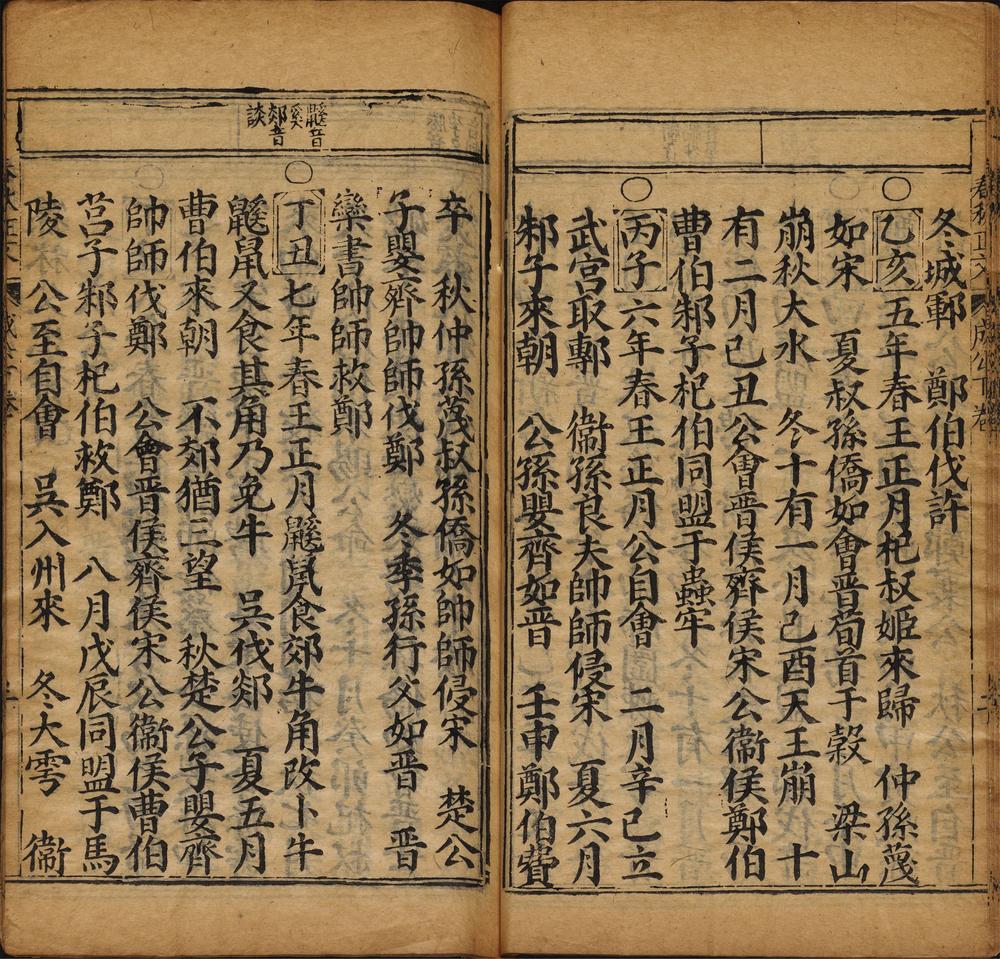 冬城鄆　鄭伯伐許
乙亥五年春王正月杞叔姬來歸　仲孫蔑
如宋　夏叔孫僑如會晉荀首于穀　梁山
崩秋大水　冬十有一月己酉天王崩　十
有二月己丑公會晉侯齊侯宋公衞侯鄭伯
曹伯邾子杞伯同盟于蟲牢
丙子六年春王正月公自會　二月辛巳立
武宮取鄟　衞孫良夫帥師侵宋　夏六月
邾子來朝　公孫嬰齊如晉　壬申鄭伯費
鼷音
奚
郯音
談
卒　秋仲孫蔑叔孫僑如帥師侵宋　楚公
子嬰齊帥師伐鄭　冬季孫行父如晉　晉
欒書帥師救鄭
丁丑七年春王正月鼷鼠食郊牛角改卜牛
鼷鼠又食其角乃免牛　吳伐郯　夏五月
曹伯來朝　不郊猶三望　秋楚公子嬰齊
帥師伐鄭　公會晉侯齊侯宋公衞侯曹伯
莒子邾子杞伯救鄭　八月戊辰同盟于馬
陵　公至自會　吳入州來　冬大雩　衞